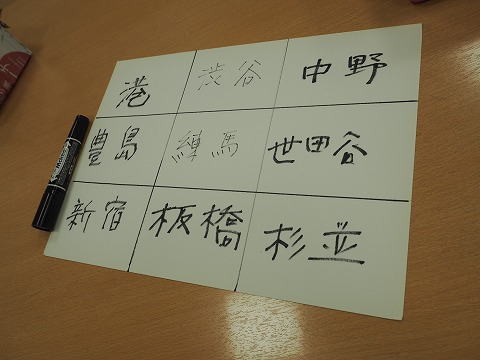 港 渋谷 中野
豊島 練馬 世田谷
新宿 板橋 杉並